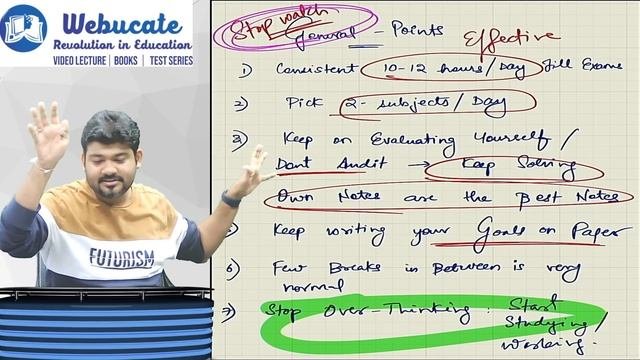 Webucate
Revolution in Education
VIDEO LECTURE | BOOKS | TEST SERIES
FUTURISM
Stop watch
General - Points
Effective
1) Consistent 10-12 hours/Day till Exams
2) Pick 2-subjects/Day
3) Keep on Evaluating Yourself/
Dont Audit → Keep Solving
Own Notes are the Best Notes
5) Keep writing your Goals on Paper
6) Few Breaks in Between is very
normal
7) Stop Over-Thinking : Start
Studying/
Working.